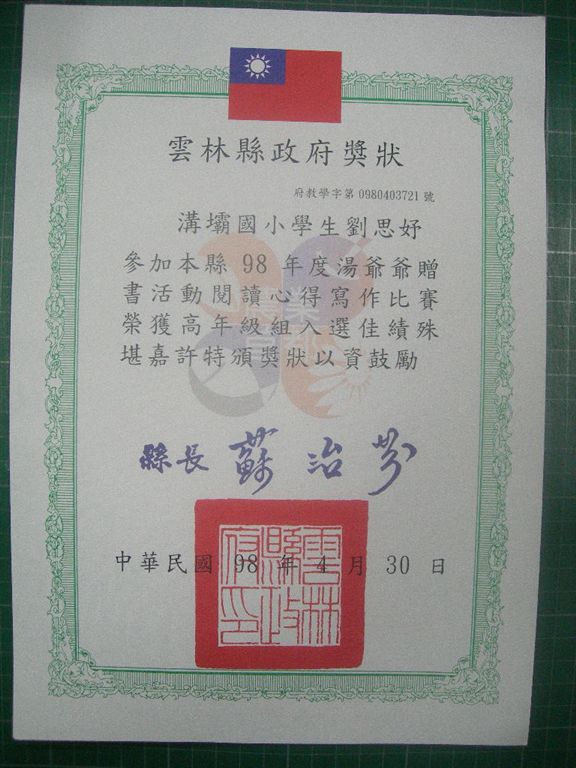 雲林縣政府獎狀
府教學字第 0980403721 號
溝壩國小學生劉思妤
參加本縣 98 年度湯爺爺贈
書活動閱讀心得寫作比賽
榮獲高年級組入選佳績殊
堪嘉許特頒獎狀以資鼓勵
縣長 蘇治芬
中華民國 98 年 4 月 30 日
雲林縣政府印